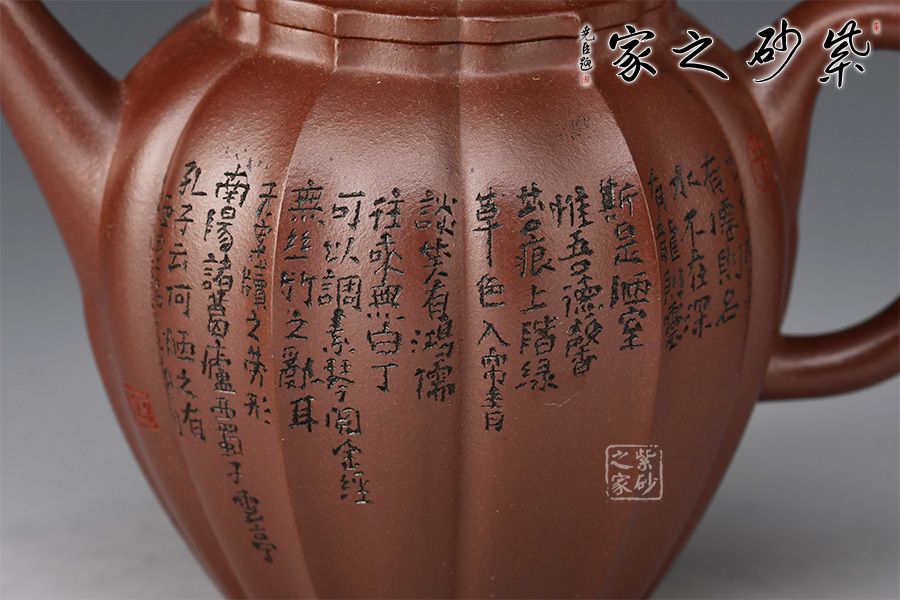 紫砂之家
有僊則名
水不在深
有龍則靈
斯是陋室
惟吾德馨
苔痕上階緑
草色入帘青
談笑有鴻儒
往來無白丁
可以調素琴閲金經
無絲竹之亂耳
案牘之勞形
南陽諸葛廬西蜀子雲亭
孔子云何陋之有
紫砂
之家